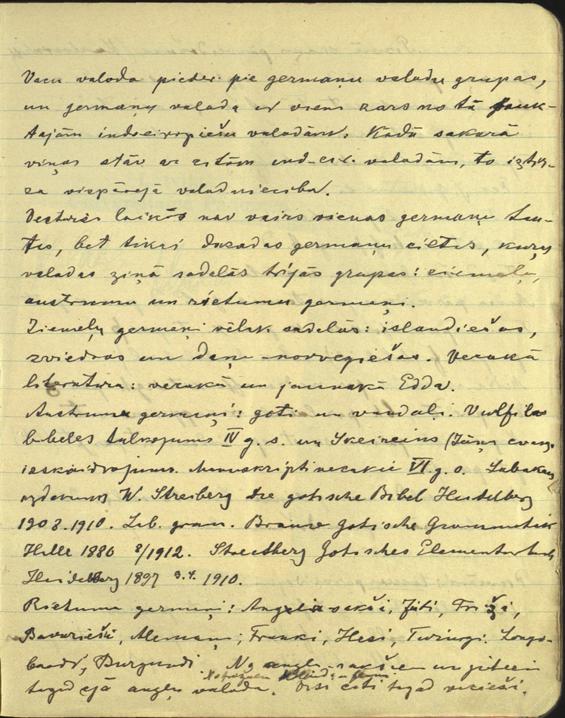 Vacu valoda pieder pie germaņu valodu grupas,
un germaņu valoda ir viens zars no tā jauk-
tajām indoeiropiešu valodām. Kādā sakarā
viņas stāv ar citām ind-eir. valodām, to iztir-
za vispārējā valodniecība.
Vēstures laikos nav vairs vienas germaņu tau-
tas, bet tikai dažādas germaņu ciltis, kuŗas
valodas ziņā sadalās trijās grupās: ziemeļu,
austrumu un rietumu germaņi.
Ziemeļu germaņi vēlāk sadalās: islandiešos,
zviedros un daņu-norveģiešos. Vecakā
literatura: vecakā un jaunakā Edda.
Austrumu germaņi: goti un vandaļi. Vulfila
bibeles tulkojums IV g. s. un Skeireins (Jāņa evang.
izskaidrojums. Manuskripti vecakie VI g. s. Labakais
izdevums W. Streiberg Die gotische Bibel Heidelberg
1908.1910. Lab. gram. Braune Gotische Grammatik
Halle 1880 8/1912. Streitberg Gotisches Elementarbuch
Heidelberg 1897 3.4. 1910.
Rietumu germaņi: Anglu sakši, Jiti, Frizi,
Bavarieši, Alemaņi; Franki, Hesi, Turingi. Longo-
bardi, Burgundi. No anglu sakšiem un jitiem
tagadejā angļu valoda. Visi citi tagad vacieši.